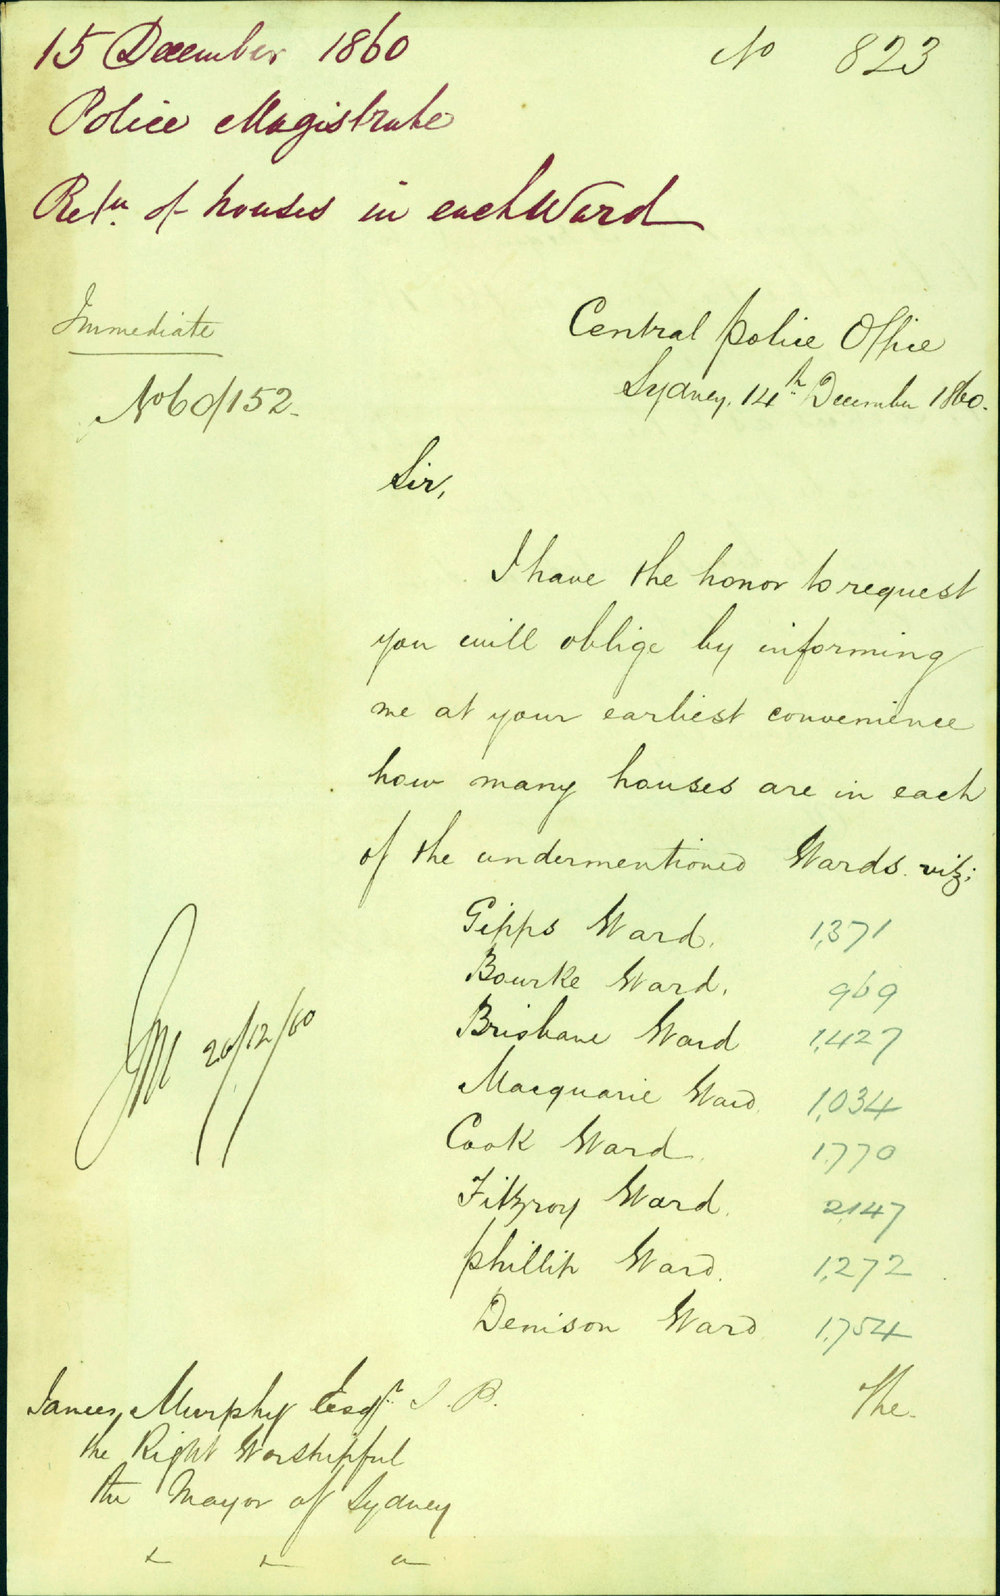 15 December 1860
No 823
Police Magistrate
Retn. of houses in each Ward
Immediate
No 60/152-
Central Police Office
Sydney, 14th December 1860.
Sir,
I have the honor to request
you will oblige by informing
me at your earliest convenience
how many houses are in each
of the undermentioned Wards. viz;
Gipps Ward. 1,371
Bourke Ward. 969
Brisbane Ward 1,427
Macquarie Ward. 1,034
Cook Ward. 1,770
Fitzroy Ward. 2,147
Phillip Ward. 1,272
Denison Ward 1,754
JM 20/12/60
The.
James Murphy Esqr. J. P.
the Right Worshipful
the Mayor of Sydney